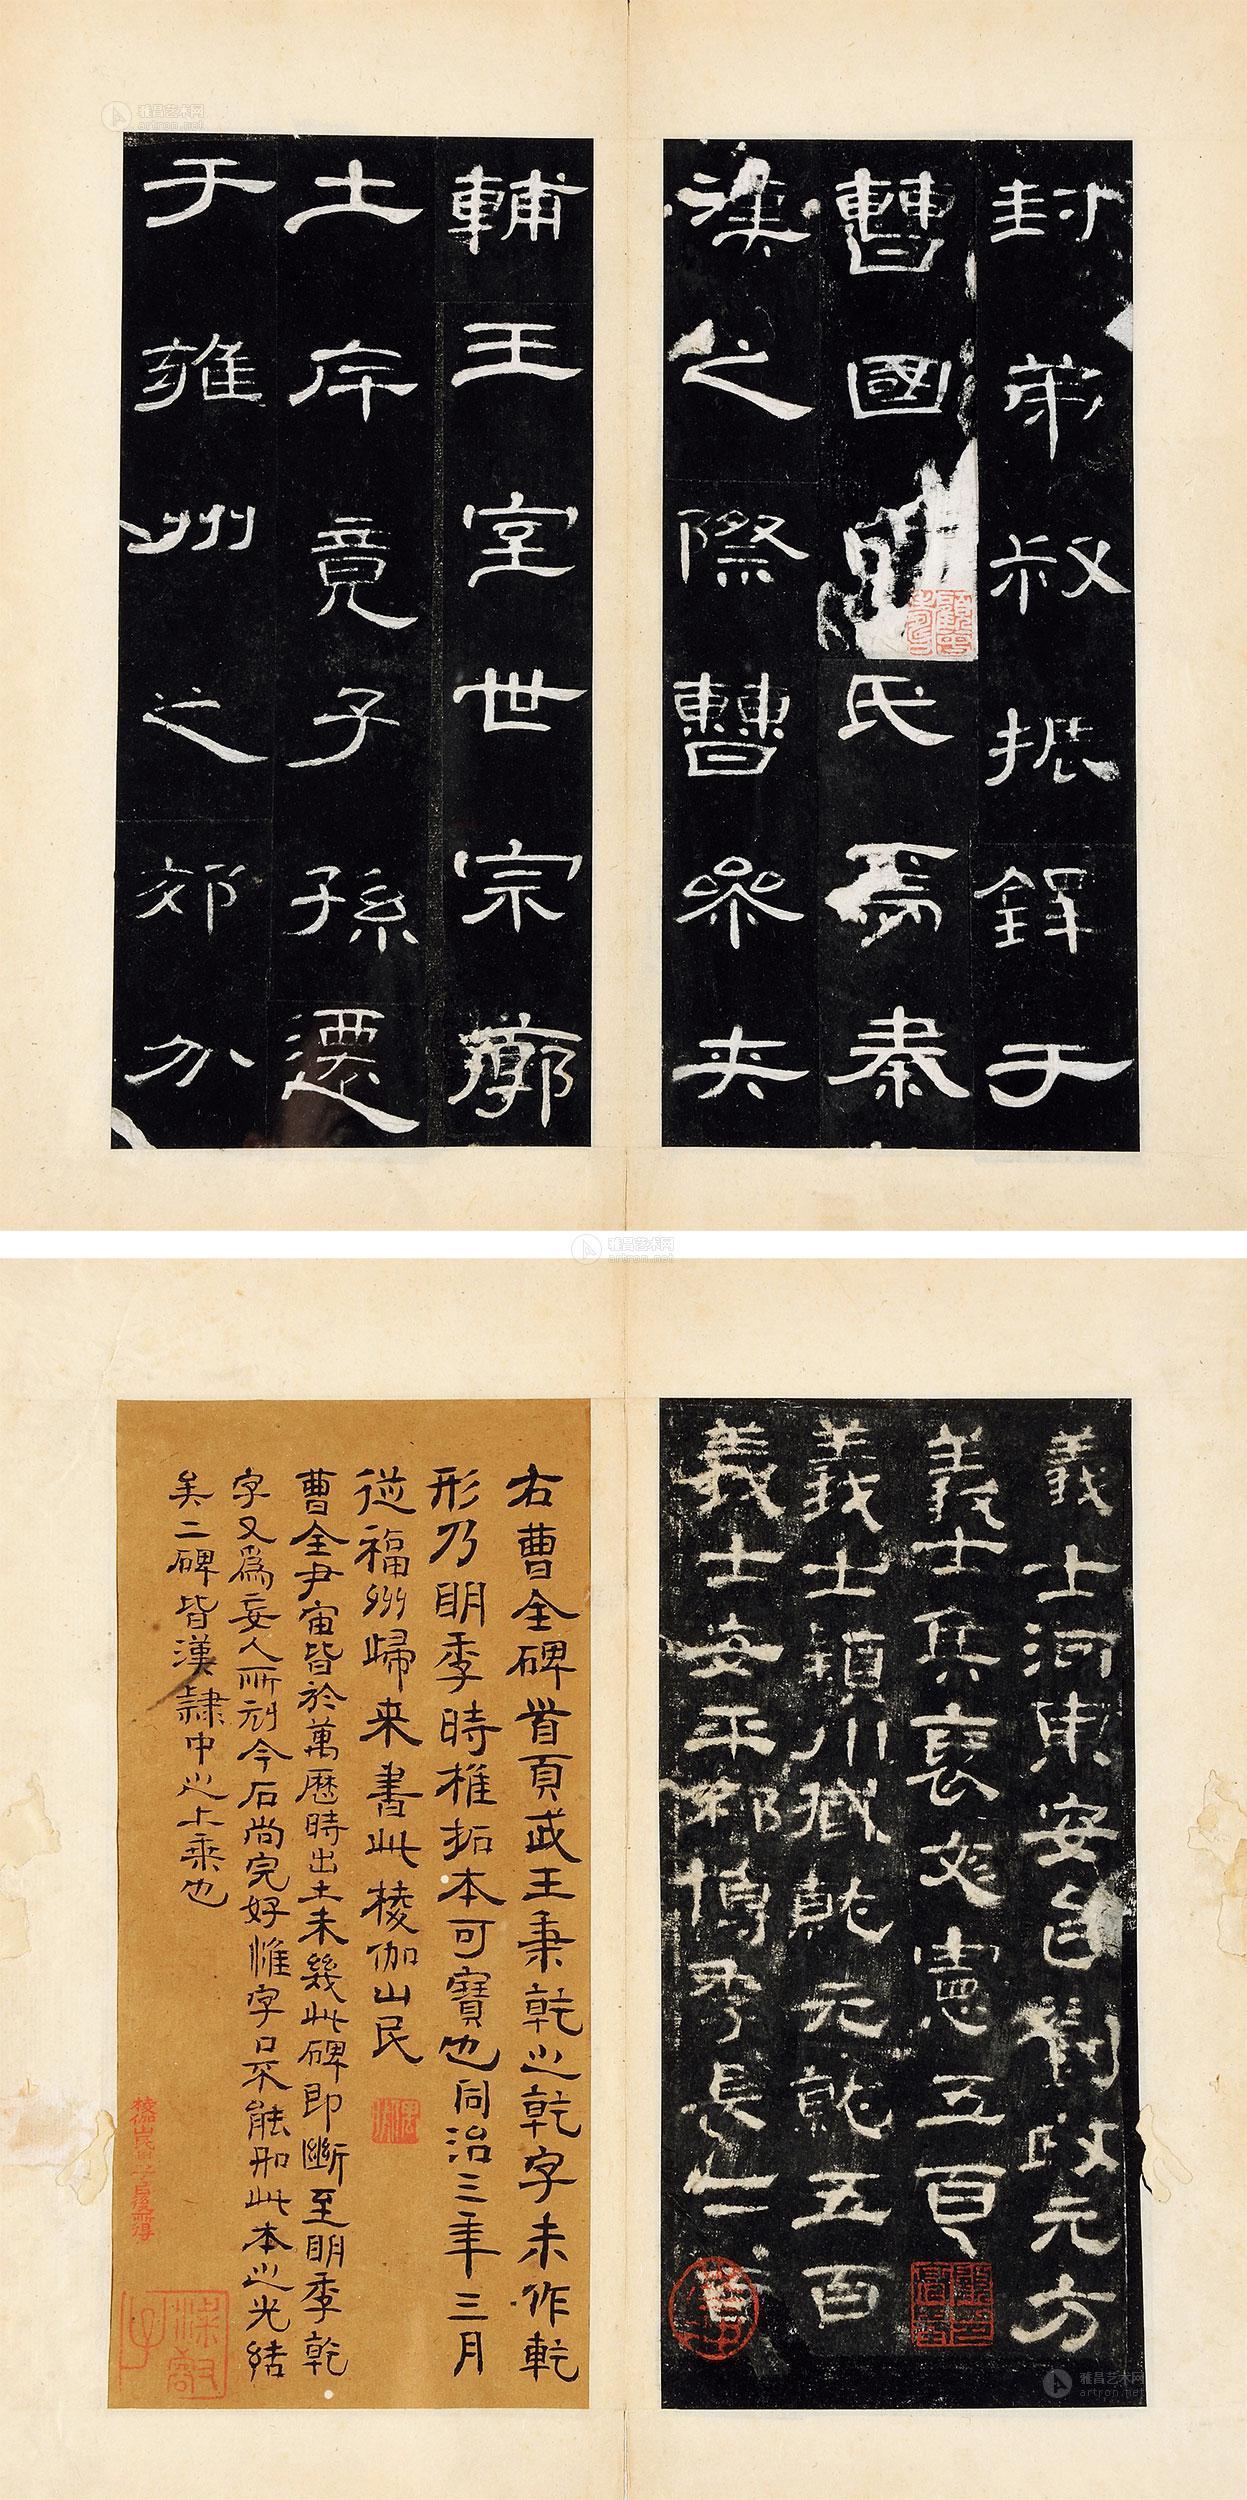 封弟叔振鐸于
曹國因氏焉秦
漢之際曹參夾
輔王室世宗廓
土斥竟子孫遷
于雍州之郊分
義士河東安邑劉政元方
義士侯褒文憲五百
義士潁川臧就元就五百
義士安平祁博季長二百
右曹全碑首頁武王秉乾之乾字未作軋
形乃明季時椎拓本可寶也同治三年三月
從福州歸來書此棱伽山民
曹全尹宙皆於萬歷時出土未幾此碑即斷至明季乾
字又為妄人所刓今石尚完好惟字口不能如此本之光結
矣二碑皆漢隸中之上乘也
雅昌艺术网
artron.net
雅昌艺术网
artron.net
雅昌艺术网
artron.net